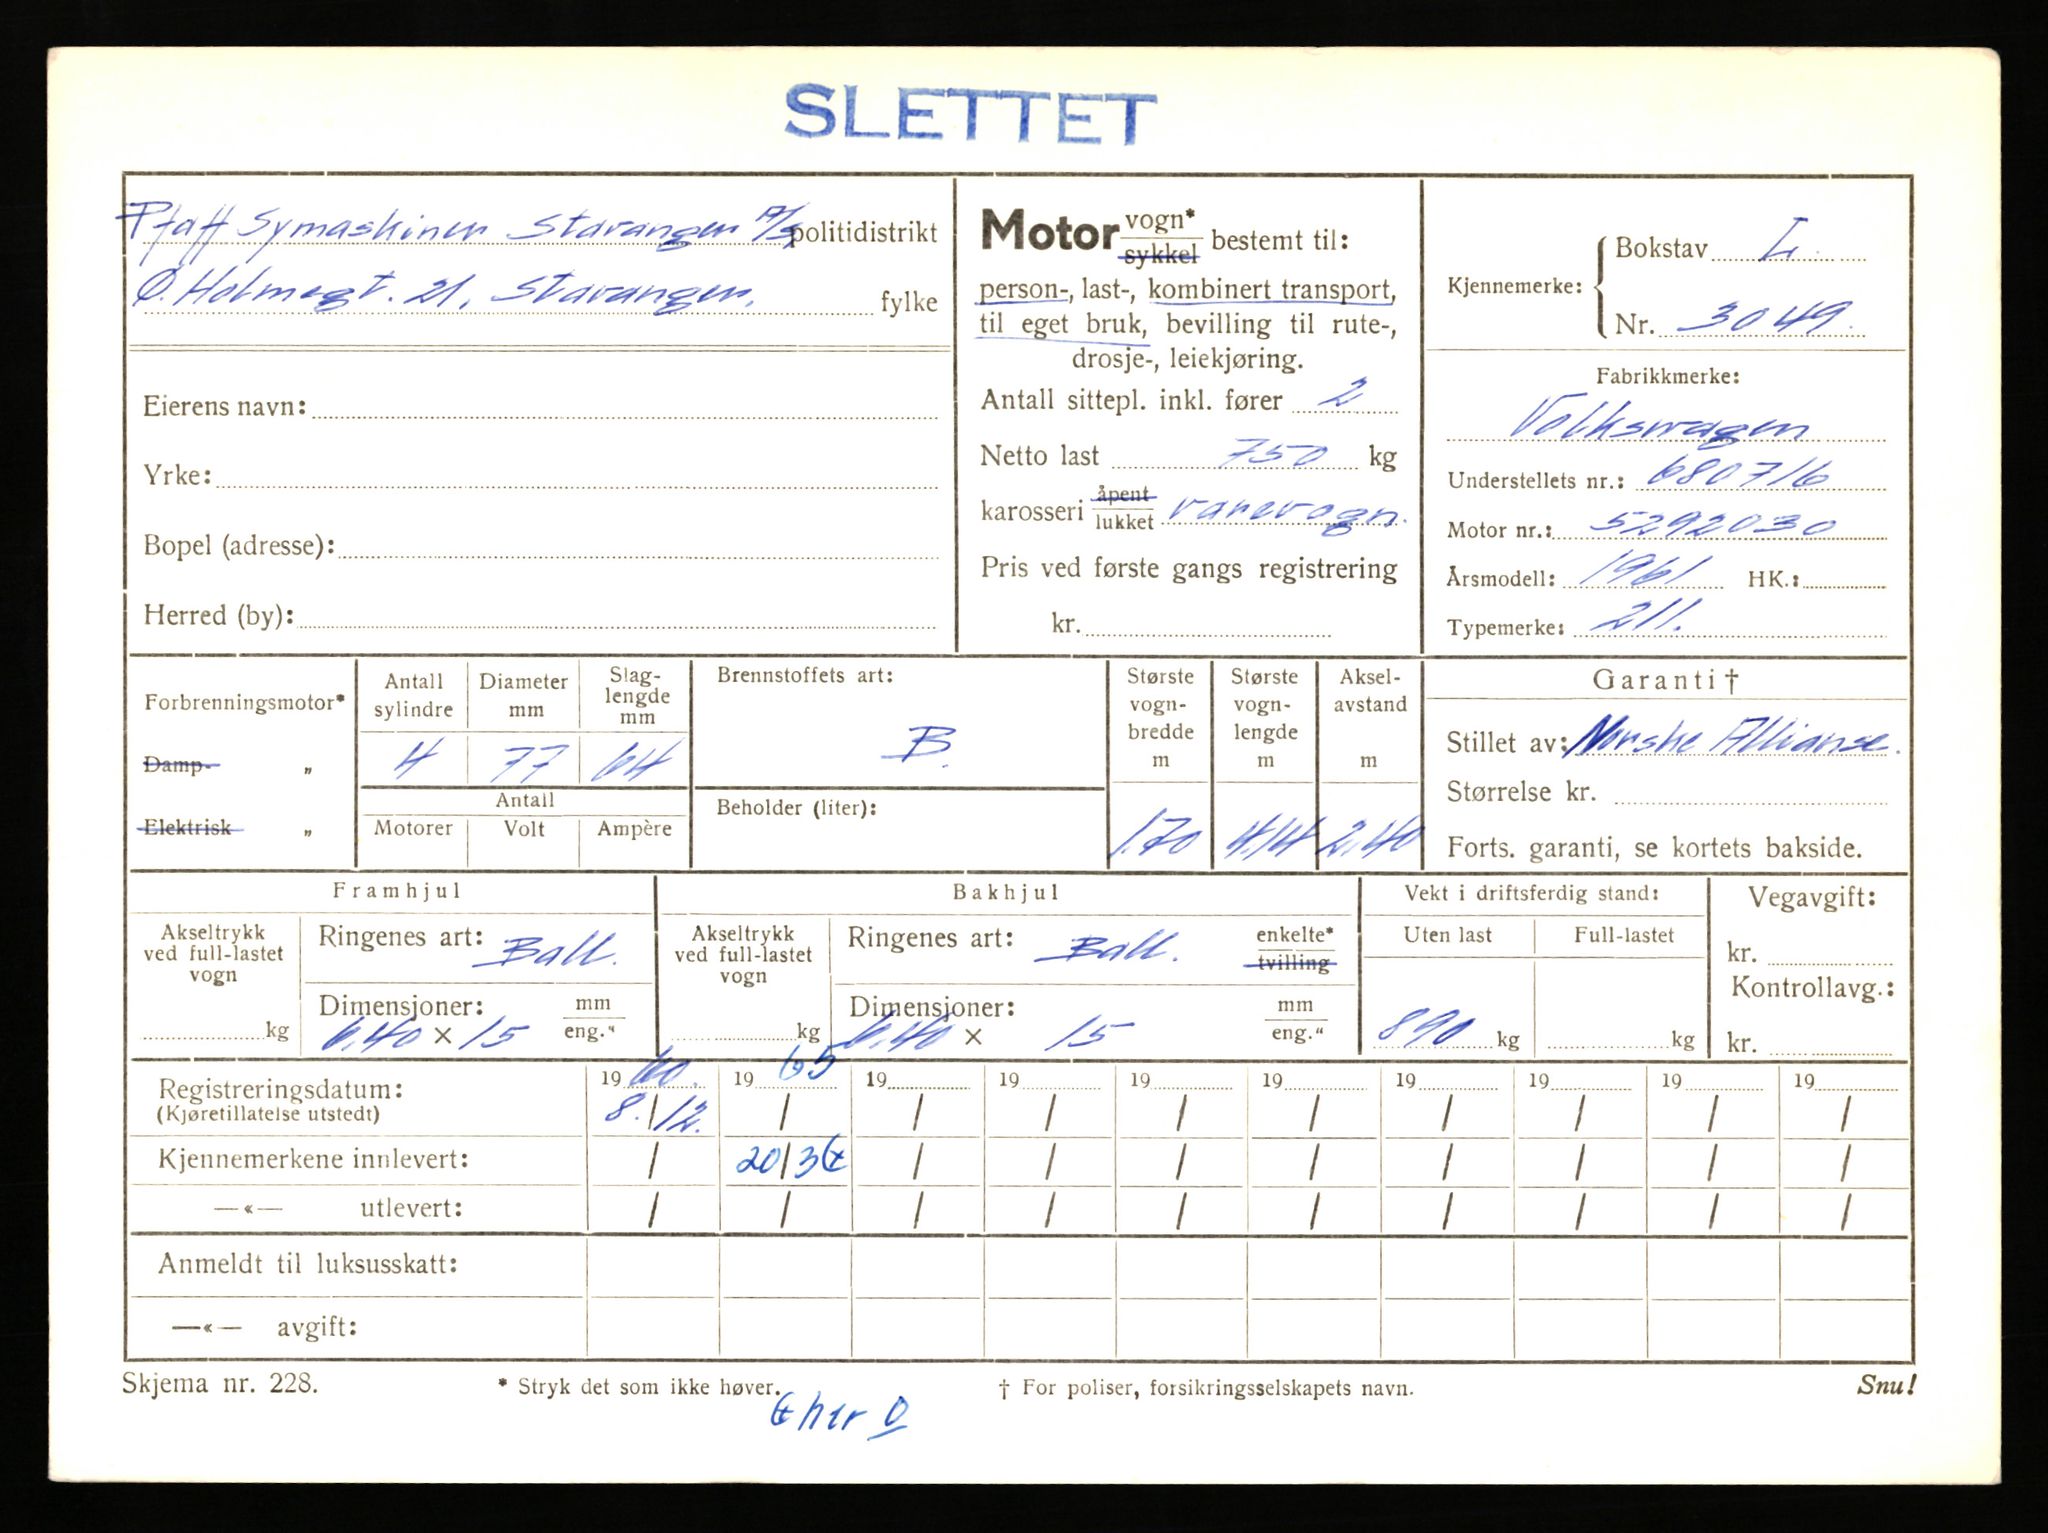 SLETTET
Pfaff Symaskiner Stavanger A/S politidistrikt
Ø. Holmegt. 21, Stavanger, fylke
Eierens navn:
Yrke:
Bopel (adresse):
Herred (by):
Motor vogn* sykkel bestemt til:
person-, last-, kombinert transport,
til eget bruk, bevilling til rute-,
drosje-, leiekjøring.
Antall sittepl. inkl. fører 2
Netto last 750 kg
karosseri åpent lukket varevogn.
Pris ved første gangs registrering
kr.
Kjennemerke: Bokstav L
Nr. 3049.
Fabrikkmerke:
Volkswagen
Understellets nr.: 680716
Motor nr.: 5292030
Årsmodell: 1961 HK.:
Typemerke: 211.
Forbrenningsmotor*
Damp- „
Elektrisk „
Antall sylindre
4
Diameter mm
77
Slag-
lengde
mm
64
Antall
Motorer Volt Ampère
Brennstoffets art:
B.
Beholder (liter):
Største
vogn-
bredde
m
1.70
Største
vogn-
lengde
m
4.14
Aksel-
avstand
m
2,40
Garanti †
Stillet av: Norske Allianse.
Størrelse kr.
Forts. garanti, se kortets bakside.
Framhjul
Akseltrykk
ved full-lastet
vogn
kg
Ringenes art: Ball.
Dimensjoner: mm
6,40 × 15 eng."
Bakhjul
Akseltrykk
ved full-lastet
vogn
kg
Ringenes art: Ball. enkelte* tvilling
Dimensjoner: mm
6,40 × 15 eng."
Vekt i driftsferdig stand:
Uten last Full-lastet
890 kg kg
Vegavgift:
kr.
Kontrollavg.:
kr.
Registreringsdatum: 19 60. 19 65 19 19 19 19 19 19 19 19
(Kjøretillatelse utstedt) 8./12. / / / / / / / / /
Kjennemerkene innlevert: / 20/3 / / / / / / / /
—«— utlevert: / / / / / / / / / /
Anmeldt til luksusskatt:
—«— avgift:
Skjema nr. 228. * Stryk det som ikke høver. † For poliser, forsikringsselskapets navn. Snu!